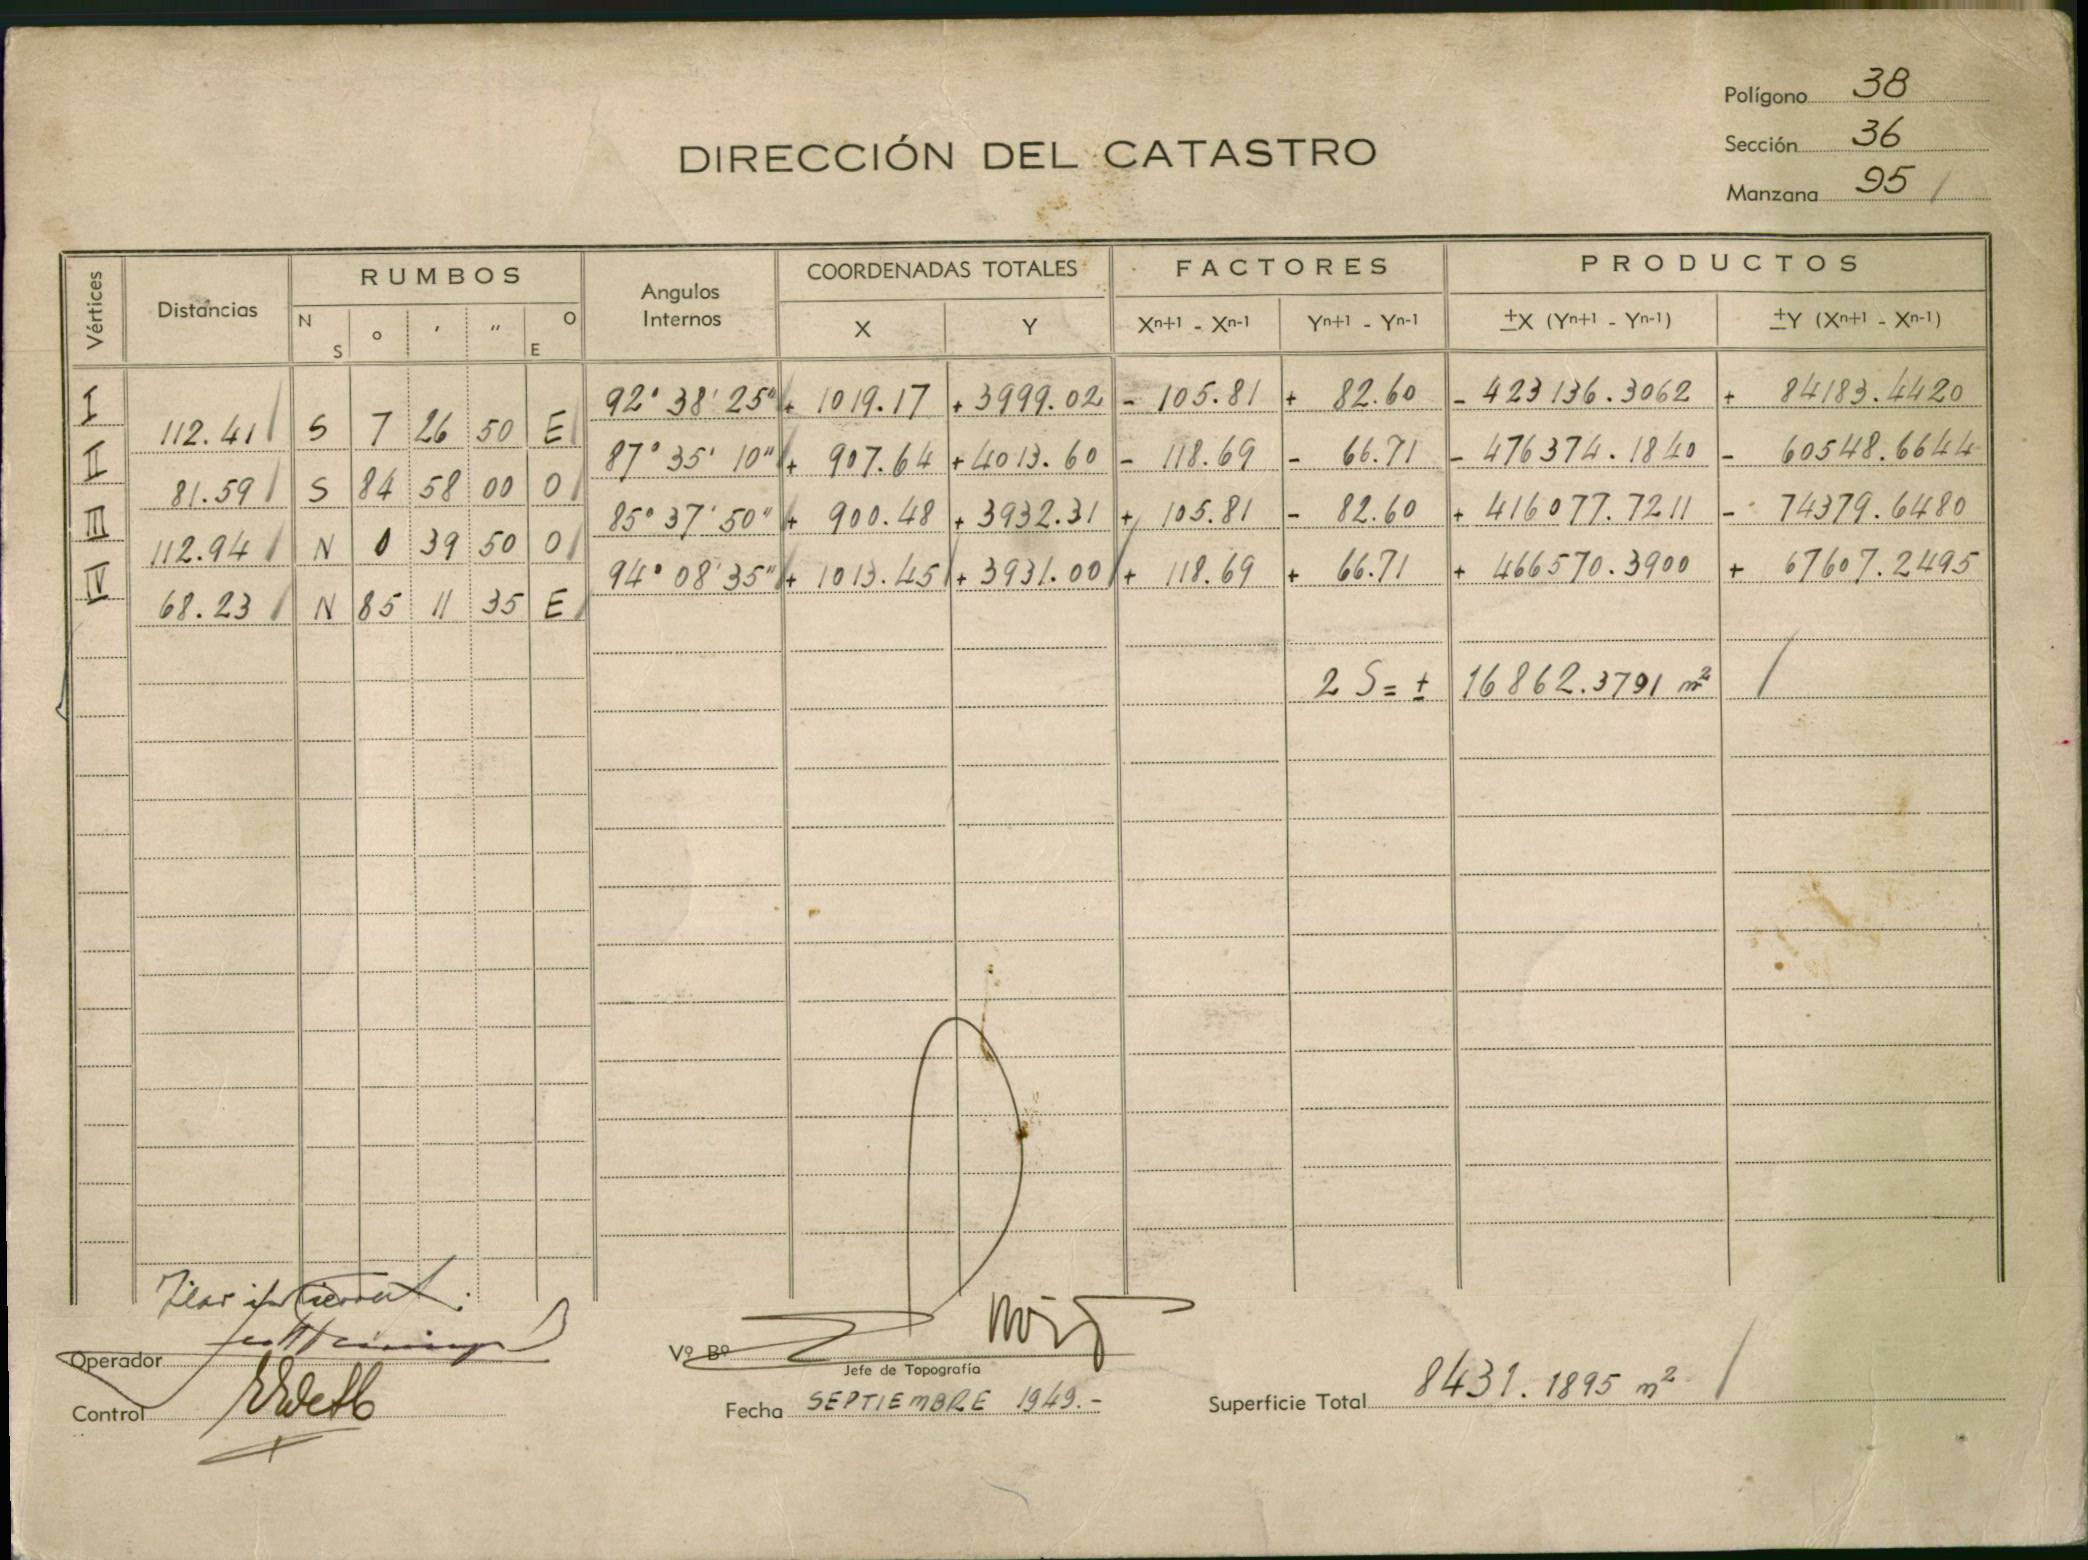 Polígono 38
DIRECCIÓN DEL CATASTRO
Sección 36
Manzana 95 /
Vértices Distancias RUMBOS Angulos Internos COORDENADAS TOTALES FACTORES PRODUCTOS
N S ° ′ ″ O E X Y Xn+1 - Xn-1 Yn+1 - Yn-1 ±X (Yn+1 - Yn-1) ±Y (Xn+1 - Xn-1)
I 92° 38' 25" + 1019.17 + 3999.02 - 105.81 + 82.60 - 423136.3062 + 84183.4420
112.41 S 7 26 50 E
II 87° 35' 10" + 907.64 + 4013.60 - 118.69 - 66.71 - 476374.1840 - 60548.6644
81.59 S 84 58 00 O
III 85° 37' 50" + 900.48 + 3932.31 + 105.81 - 82.60 + 416077.7211 - 74379.6480
112.94 N 0 39 50 O
IV 94° 08' 35" + 1013.45 + 3931.00 + 118.69 + 66.71 + 466570.3900 + 67607.2495
68.23 N 85 11 35 E
2 S = ± 16862.3791 m² /
Operador
Vº Bº
Jefe de Topografía
Control
Fecha SEPTIEMBRE 1949.-
Superficie Total 8431.1895 m² /